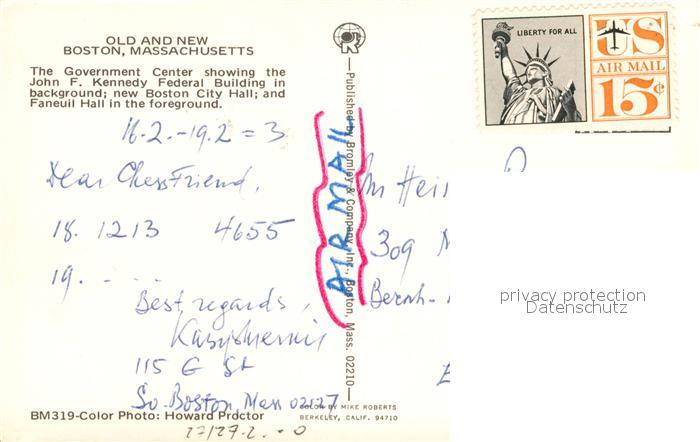 OLD AND NEW
BOSTON, MASSACHUSETTS
The Government Center showing the
John F. Kennedy Federal Building in
background; new Boston City Hall; and
Faneuil Hall in the foreground.
16.2.-19.2 = 3
Dear ChessFriend,
18. 1213 4655
19. - - -
Best regards,
115 G St
So. Boston, Mass 02127
BM319-Color Photo: Howard Proctor
27/27.2. - 0
R
Published by Bromley & Company, Inc., Boston, Mass. 02210
AIR MAIL
COLOR BY MIKE ROBERTS
BERKELEY, CALIF. 94710
LIBERTY FOR ALL
US
AIR MAIL
15¢
309
privacy protection
Datenschutz